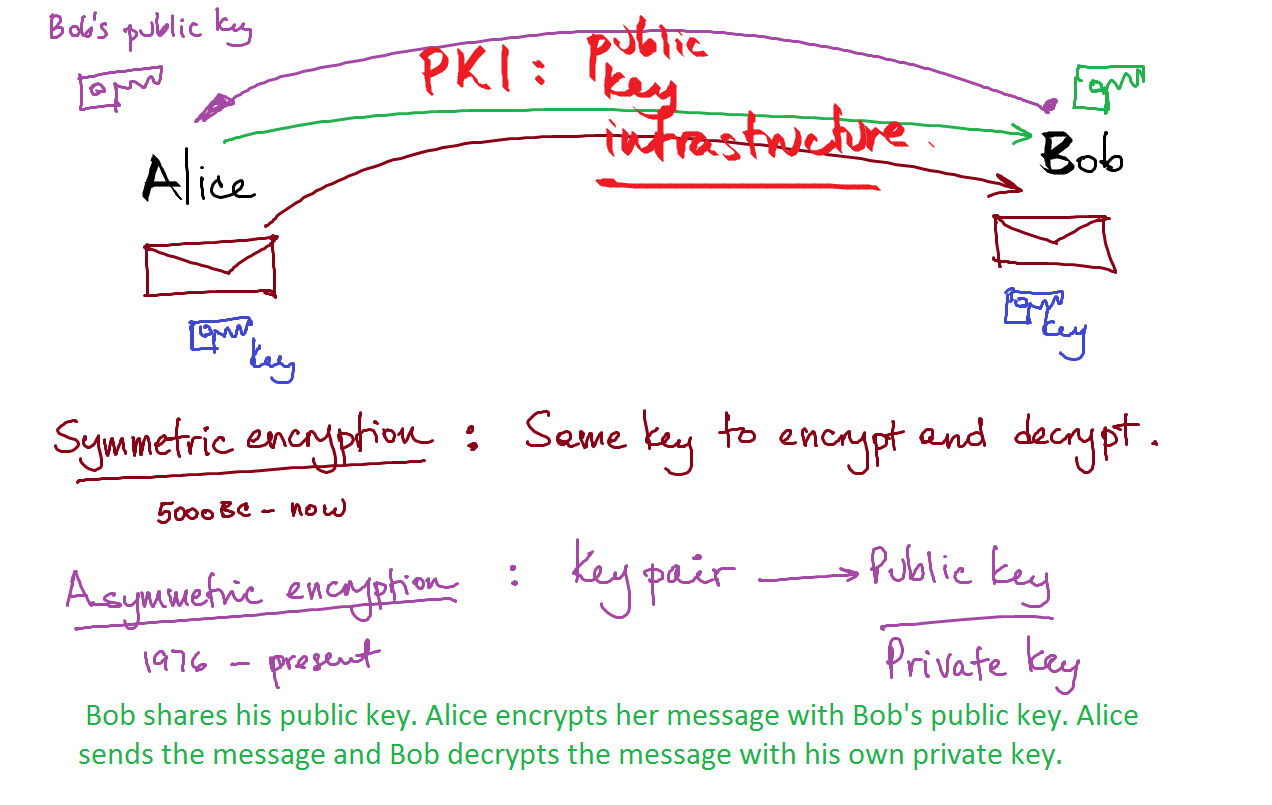 Bob's public key
PKI: public
key
infrastructure.
Alice
Bob
key
key
Symmetric encryption : Same key to encrypt and decrypt.
5000BC - now
Asymmetric encryption : key pair → Public key
1976 - present
Private key
Bob shares his public key. Alice encrypts her message with Bob's public key. Alice
sends the message and Bob decrypts the message with his own private key.